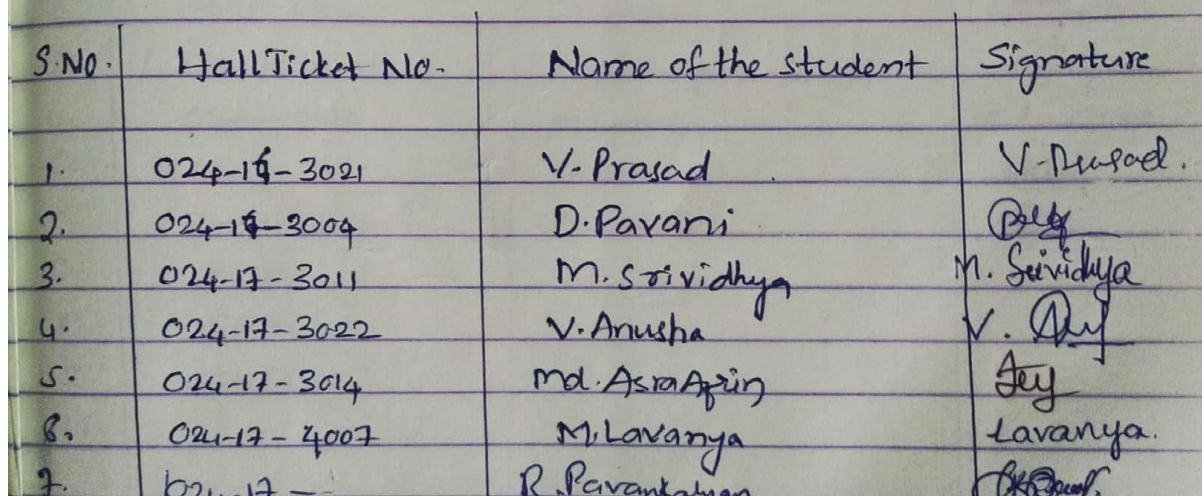 S.No. Hall Ticket No. Name of the student Signature
1. 024-16-3021 V. Prasad V. Prasad.
2. 024-17-3004 D. Pavani
3. 024-17-3011 M. Srividhya M. Srividhya
4. 024-17-3022 V. Anusha V.
5. 024-17-3014 Md. Asra Afrin
6. 024-17-4007 M. Lavanya Lavanya.
7. 024-17- R. Pavankalyan